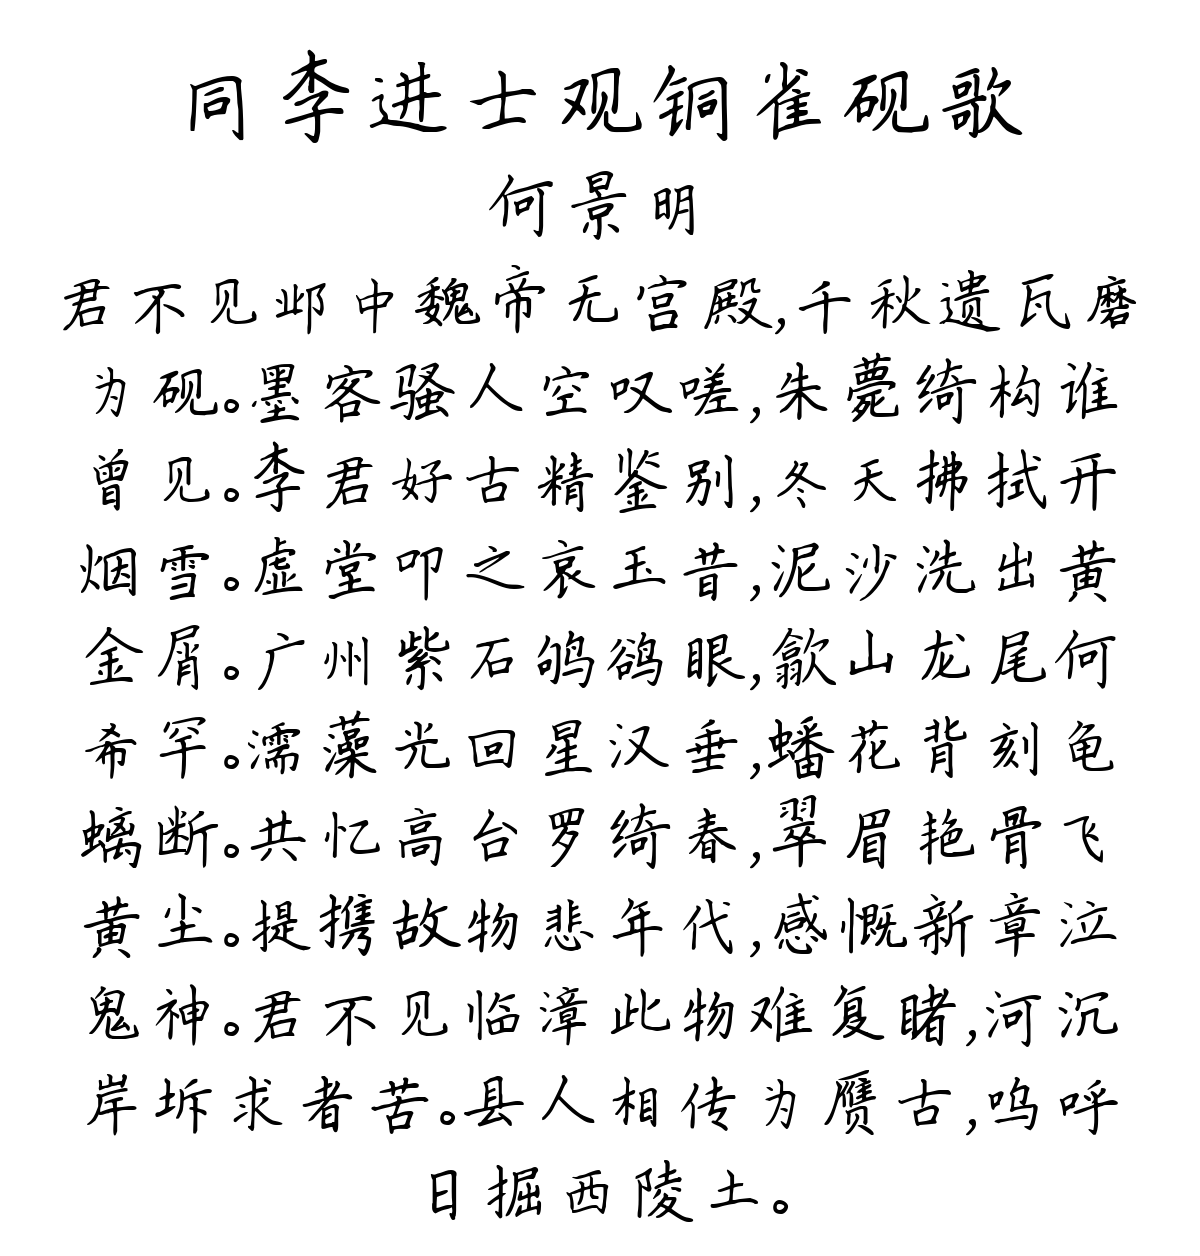 同李进士观铜雀砚歌
何景明
君不见邺中魏帝无宫殿,千秋遗瓦磨
为砚。墨客骚人空叹嗟,朱甍绮构谁
曾见。李君好古精鉴别,冬天拂拭开
烟雪。虚堂叩之哀玉昔,泥沙洗出黄
金屑。广州紫石鸲鹆眼,歙山龙尾何
希罕。濡藻光回星汉垂,蟠花背刻龟
螭断。共忆高台罗绮春,翠眉艳骨飞
黄尘。提携故物悲年代,感慨新章泣
鬼神。君不见临漳此物难复睹,河沉
岸坼求者苦。县人相传为赝古,呜呼
日掘西陵土。